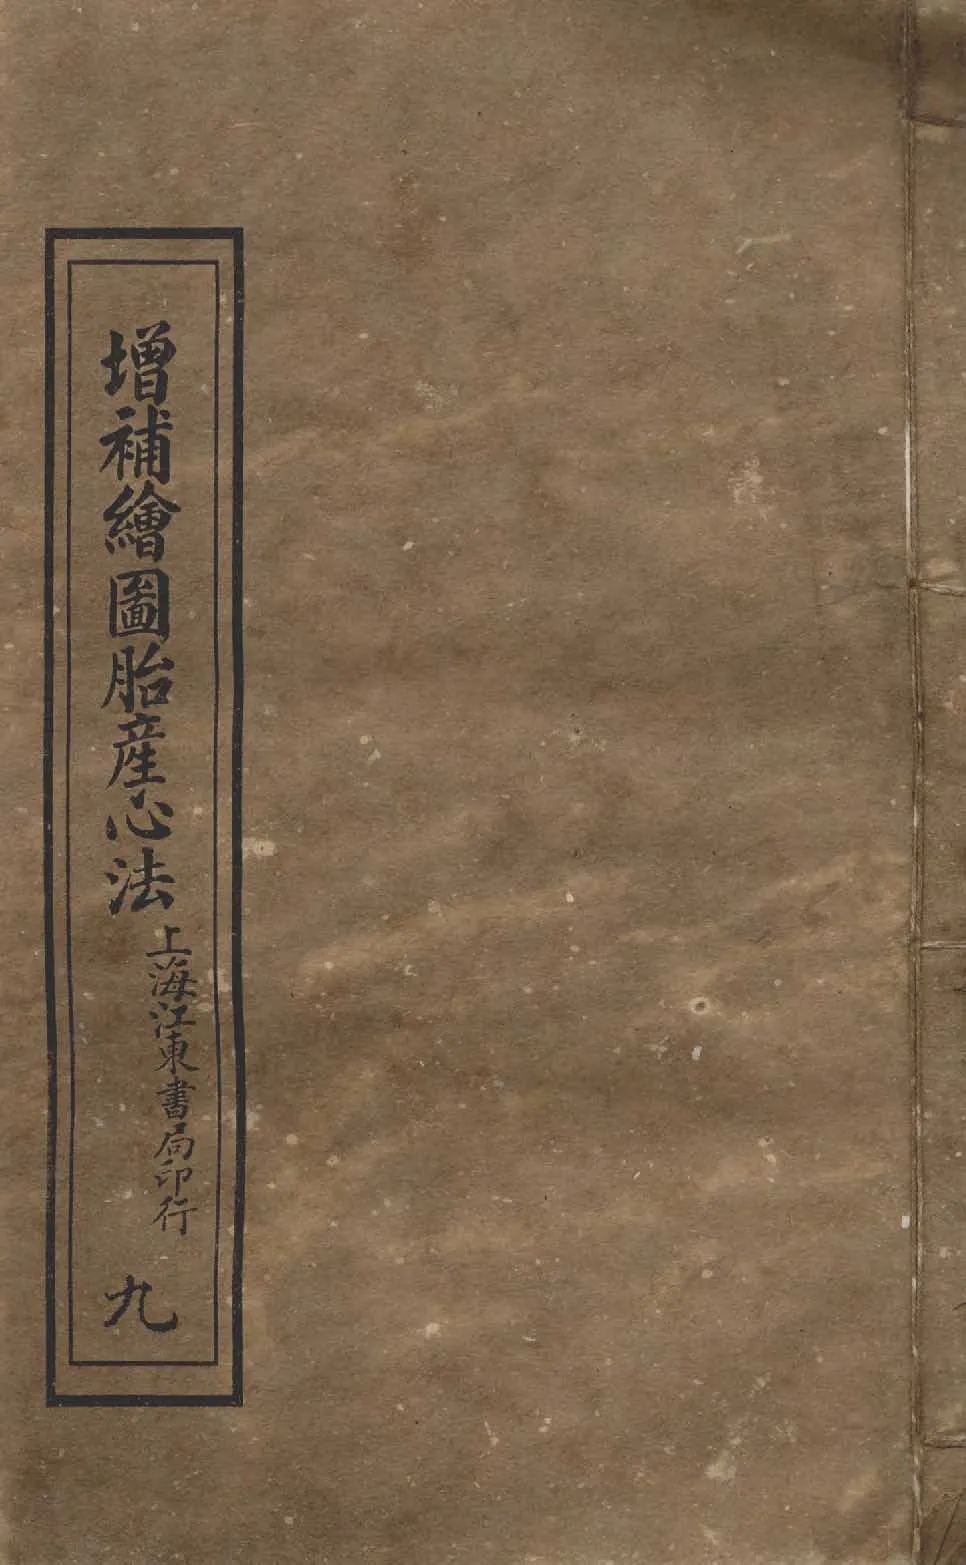 增補繪圖胎產心法
上海江東書局印行
九